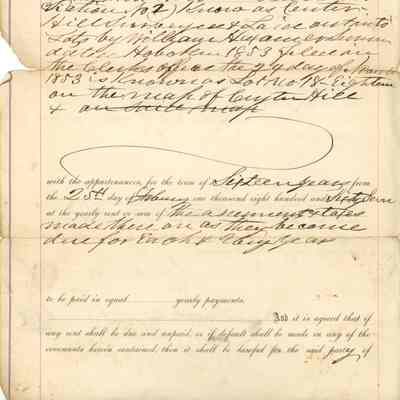 Section No 2) Know as Center
Hill Surveyed & Laid out into
Lots by William
dated Hoboken 1853 & filed in
the Clerks office the 24 day of
1853 is Known as Lot No 18 Eighteen
on the map of Center Hill
& on said map
with the appurtenances, for the term of Sixteen years from
the 20th day of one thousand eight hundred and Sixty Seven
at the yearly rent or sum of the assessments & taxes
made there on as they become
due for Each & Every Year
to be paid in equal yearly payments.
And it is agreed that if
any rent shall be due and unpaid, or if default shall be made in any of the
covenants herein contained, then it shall be lawful for the said party of